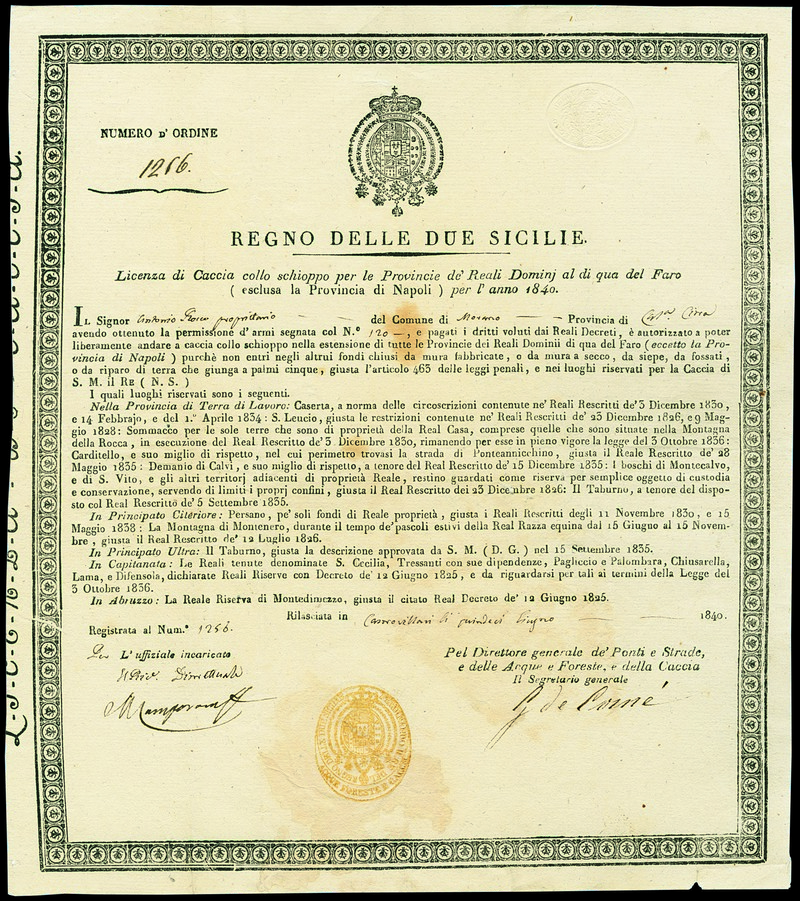 NUMERO D' ORDINE
1256.
REGNO DELLE DUE SICILIE.
Licenza di Caccia collo schioppo per le Provincie de' Reali Dominj al di qua del Faro
( esclusa la Provincia di Napoli ) per l' anno 1840.
IL Signor Antonio Rocco proprietario del Comune di Morano Provincia di
avendo ottenuto la permissione d'armi segnata col N.° 120 —, e pagati i dritti voluti dai Reali Decreti, è autorizzato a poter
liberamente andare a caccia collo schioppo nella estensione di tutte le Provincie dei Reali Dominii di qua del Faro (eccetto la Pro-
vincia di Napoli ) purchè non entri negli altrui fondi chiusi da mura fabbricate, o da mura a secco, da siepe, da fossati,
o da riparo di terra che giunga a palmi cinque, giusta l'articolo 463 delle leggi penali, e nei luoghi riservati per la Caccia di
S. M. il RE ( N. S. )
I quali luoghi riservati sono i seguenti.
Nella Provincia di Terra di Lavoro: Caserta, a norma delle circoscrizioni contenute ne' Reali Rescritti de' 3 Dicembre 1830,
e 14 Febbrajo, e del 1.° Aprile 1834: S. Leucio, giusta le restrizioni contenute ne' Reali Rescritti de' 23 Dicembre 1826, e 9 Mag-
gio 1828: Sommacco per le sole terre che sono di proprietà della Real Casa, comprese quelle che sono situate nella Montagna
della Rocca, in esecuzione del Real Rescritto de' 3 Dicembre 1830, rimanendo per esse in pieno vigore la legge del 3 Ottobre 1836:
Carditello, e suo miglio di rispetto, nel cui perimetro trovasi la strada di Ponteannicchino, giusta il Reale Rescritto de' 28
Maggio 1835: Demanio di Calvi, e suo miglio di rispetto, a tenore del Real Rescritto de' 15 Dicembre 1835: I boschi di Montecalvo,
e di S. Vito, e gli altri territorj adiacenti di proprietà Reale, restino guardati come riserva per semplice oggetto di custodia
e conservazione, servendo di limiti i proprj confini, giusta il Real Rescritto dei 23 Dicembre 1826: Il Taburno, a tenore del dispo-
sto col Real Rescritto de' 5 Settembre 1835.
In Principato Citeriore: Persano, pe' soli fondi di Reale proprietà, giusta i Reali Rescritti degli 11 Novembre 1830, e 15
Maggio 1838: La Montagna di Montenero, durante il tempo de' pascoli estivi della Real Razza equina dal 15 Giugno al 15 Novem-
bre, giusta il Real Rescritto de' 12 Luglio 1826.
In Principato Ultra: Il Taburno, giusta la descrizione approvata da S. M. ( D. G. ) nel 15 Settembre 1835.
In Capitanata: Le Reali tenute denominate S. Cecilia, Tressanti con sue dipendenze, Pagliccio e Palombara, Chiusarella,
Lama, e Difensola, dichiarate Reali Riserve con Decreto de' 12 Giugno 1825, e da riguardarsi per tali ai termini della Legge del
3 Ottobre 1836.
In Abruzzo: La Reale Riserva di Montedimezzo, giusta il citato Real Decreto de' 12 Giugno 1825.
Rilasciata in Castrovillari li quindeci Giugno 1840.
Registrata al Num.° 1256.
Per L' uffiziale incaricato
Pel Direttore generale de' Ponti e Strade,
e delle Acque e Foreste, e della Caccia
Il Segretario generale